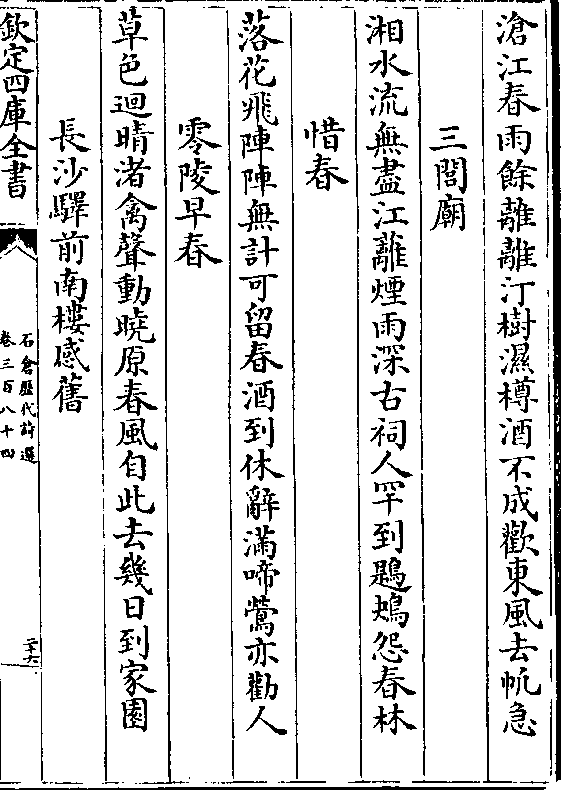 滄江春雨餘離離汀樹濕樽酒不成歡東風去帆急
三閭廟
湘水流無盡江蘺煙雨深古祠人罕到鶗鴂怨春林
惜春
落花飛陣陣無計可留春酒到休辭滿啼鶯亦勸人
零陵早春
草色迴晴渚禽聲動曉原春風自此去幾日到家園
長沙驛前南樓感舊
欽定四庫全書
石倉歷代詩選
卷三百八十四
二十六